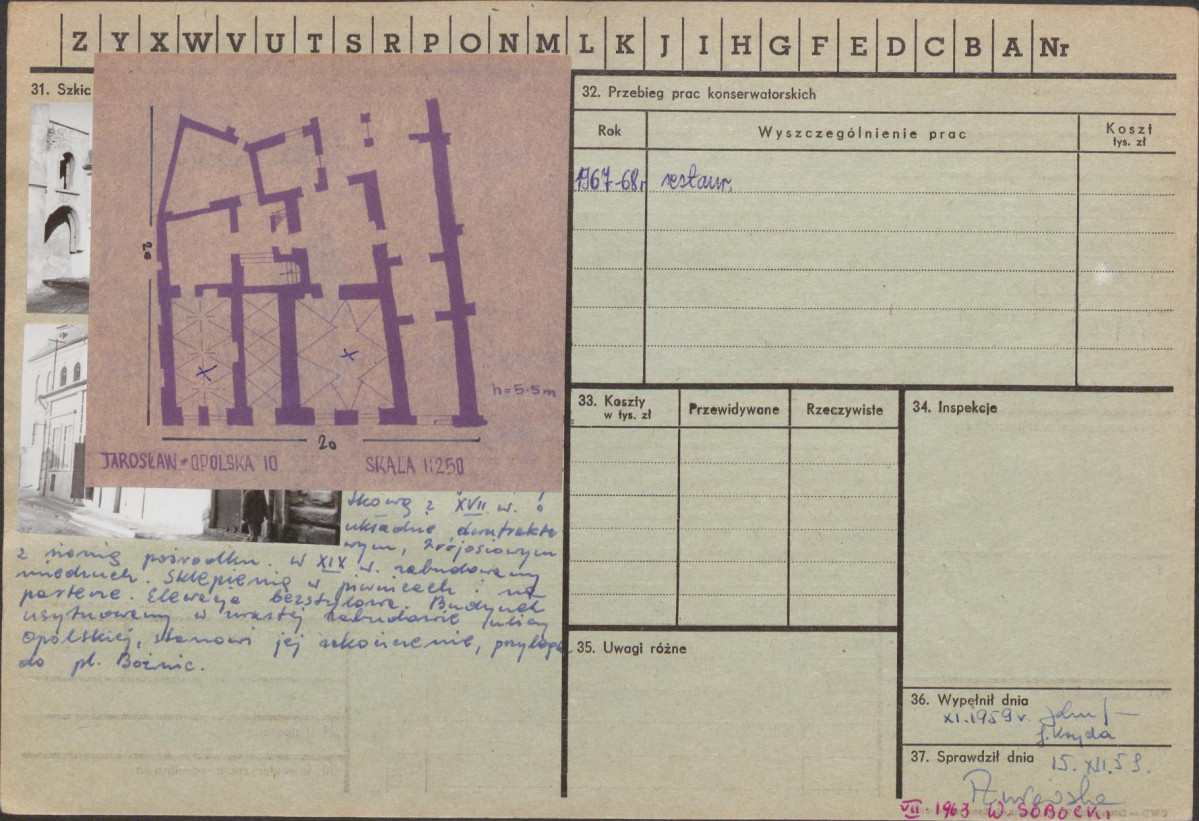 Z Y X W V U T S R P O N M L K J I H G F E D C B A Nr
31. Szkic
20
h=5.5m
20
JAROSŁAW - OPOLSKA 10 SKALA 1:250
XVII w. o
układzie dwutrakto
wym, trójosiowym
z sienią pośrodku. W XIX w. zabudowany
miedzuch. Sklepienia w piwnicach i na
parterze. Elewacja bezstylowa. Budynek
usytuowany w zwartej zabudowie ulicy
Opolskiej, stanowi jej zakończenie, przylega
do pl. Bożnic.
32. Przebieg prac konserwatorskich
Rok Wyszczególnienie prac Koszt
tys. zł
1967-68r restaur.
33. Koszty
w tys. zł
Przewidywane Rzeczywiste
34. Inspekcje
35. Uwagi różne
36. Wypełnił dnia
XI.1959 r.
37. Sprawdził dnia 15. XII.59.
VII. 1963 W SOBOCKI